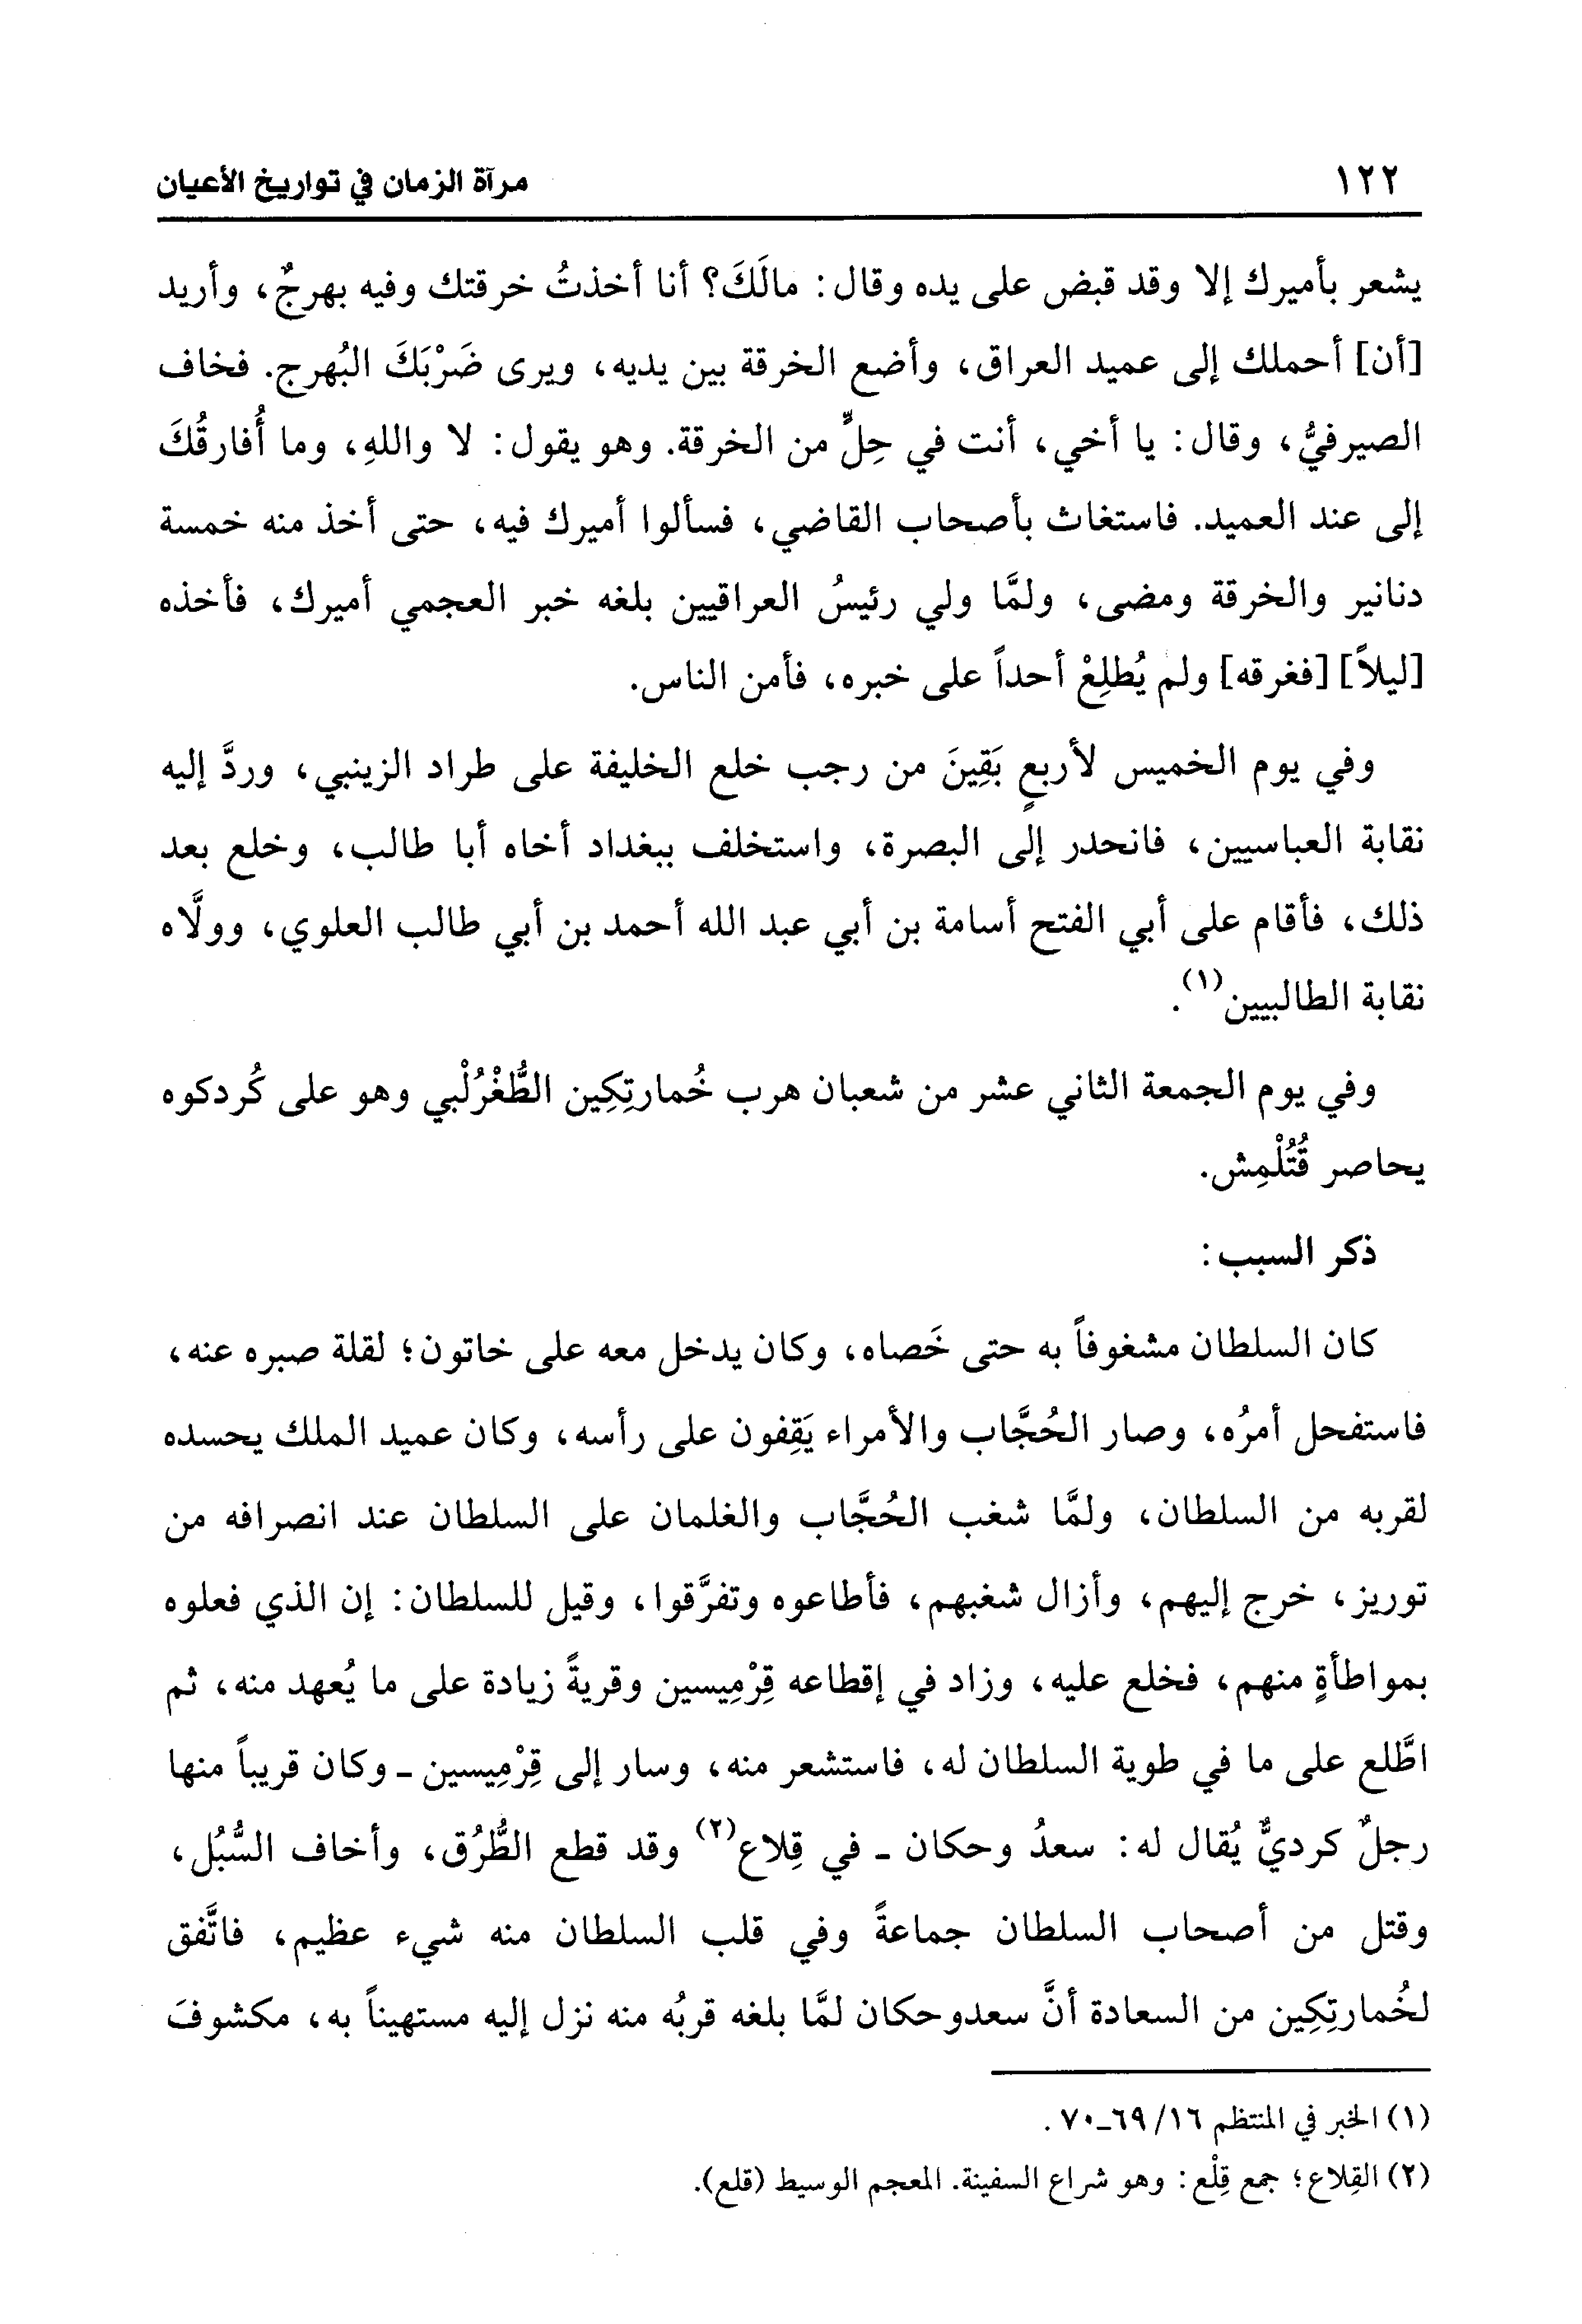 ١٢٢ مرآة الزمان في تواريخ الأعيان
يشعر بأميرك إلا وقد قبض على يده وقال: مالَكَ؟ أنا أخذتُ خرقتك وفيه بهرجٌ، وأريد
[أن] أحملك إلى عميد العراق، وأضع الخرقة بين يديه، ويرى ضَرْبَكَ البُهرج. فخاف
الصيرفيُّ، وقال: يا أخي، أنت في حِلٍّ من الخرقة. وهو يقول: لا واللهِ، وما أُفارقُكَ
إلى عند العميد. فاستغاث بأصحاب القاضي، فسألوا أميرك فيه، حتى أخذ منه خمسة
دنانير والخرقة ومضى، ولمَّا ولي رئيسُ العراقيين بلغه خبر العجمي أميرك، فأخذه
[ليلاً] [فغرقه] ولم يُطلِعْ أحداً على خبره، فأمن الناس.
وفي يوم الخميس لأربعٍ بَقِينَ من رجب خلع الخليفة على طراد الزينبي، وردَّ إليه
نقابة العباسيين، فانحدر إلى البصرة، واستخلف ببغداد أخاه أبا طالب، وخلع بعد
ذلك، فأقام على أبي الفتح أسامة بن أبي عبد الله أحمد بن أبي طالب العلوي، وولَّاه
نقابة الطالبيين(١).
وفي يوم الجمعة الثاني عشر من شعبان هرب خُمارتِكِين الطُّغْرُلْبي وهو على كُردكوه
يحاصر قُتُلْمِش.
ذكر السبب:
كان السلطان مشغوفاً به حتى خَصاه، وكان يدخل معه على خاتون؛ لقلة صبره عنه،
فاستفحل أمرُه، وصار الحُجَّاب والأمراء يَقِفون على رأسه، وكان عميد الملك يحسده
لقربه من السلطان، ولمَّا شغب الحُجَّاب والغلمان على السلطان عند انصرافه من
توريز، خرج إليهم، وأزال شغبهم، فأطاعوه وتفرَّقوا، وقيل للسلطان: إن الذي فعلوه
بمواطأةٍ منهم، فخلع عليه، وزاد في إقطاعه قِرْمِيسين وقريةً زيادة على ما يُعهد منه، ثم
اطَّلع على ما في طوية السلطان له، فاستشعر منه، وسار إلى قِرْمِيسين ـ وكان قريباً منها
رجلٌ كرديٌّ يُقال له: سعدُ وحكان ـ في قِلاع(٢) وقد قطع الطُّرُق، وأخاف السُّبُل،
وقتل من أصحاب السلطان جماعةً وفي قلب السلطان منه شيء عظيم، فاتَّفق
لخُمارتِكِين من السعادة أنَّ سعدوحكان لمَّا بلغه قربُه منه نزل إليه مستهيناً به، مكشوفَ
(١) الخبر في المنتظم ١٦/ ٦٩ـ٧٠.
(٢) القِلاع؛ جمع قِلْع: وهو شراع السفينة. المعجم الوسيط (قلع).